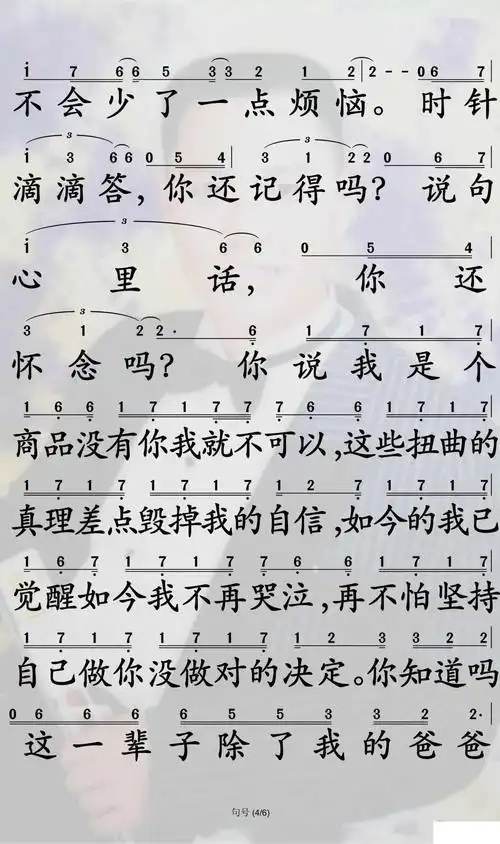 i 7 6 6 5 3 3 2 1 2 | 2 - - 0 6 7 |
不会少了一点烦恼。时针
3 3
i 3 6 6 0 5 4 | 3 1 2 2 0 6 7 |
滴滴答，你还记得吗？说句
3
i 3 6 6 0 5 4 |
心里话，你还
3
3 1 2 2· 6 1 7 1 7 |
怀念吗？你说我是个
1 6 6 1 7 1 7 7 6 6 1 7 1 7 |
商品没有你我就不可以，这些扭曲的
1 7 1 7 1 7 1 7 1 2 7 1 7 1 7 |
真理差点毁掉我的自信，如今的我已
1 6 7 1 7 1 7 7 6 6 1 7 1 7 |
觉醒如今我不再哭泣，再不怕坚持
1 7 1 7 1 7 1 7 1 2 3 3 2 2 |
自己做你没做对的决定。你知道吗
0 6 6 6 6 5 5 3 3 2 2· |
这一辈子除了我的爸爸
句号 (4/6)